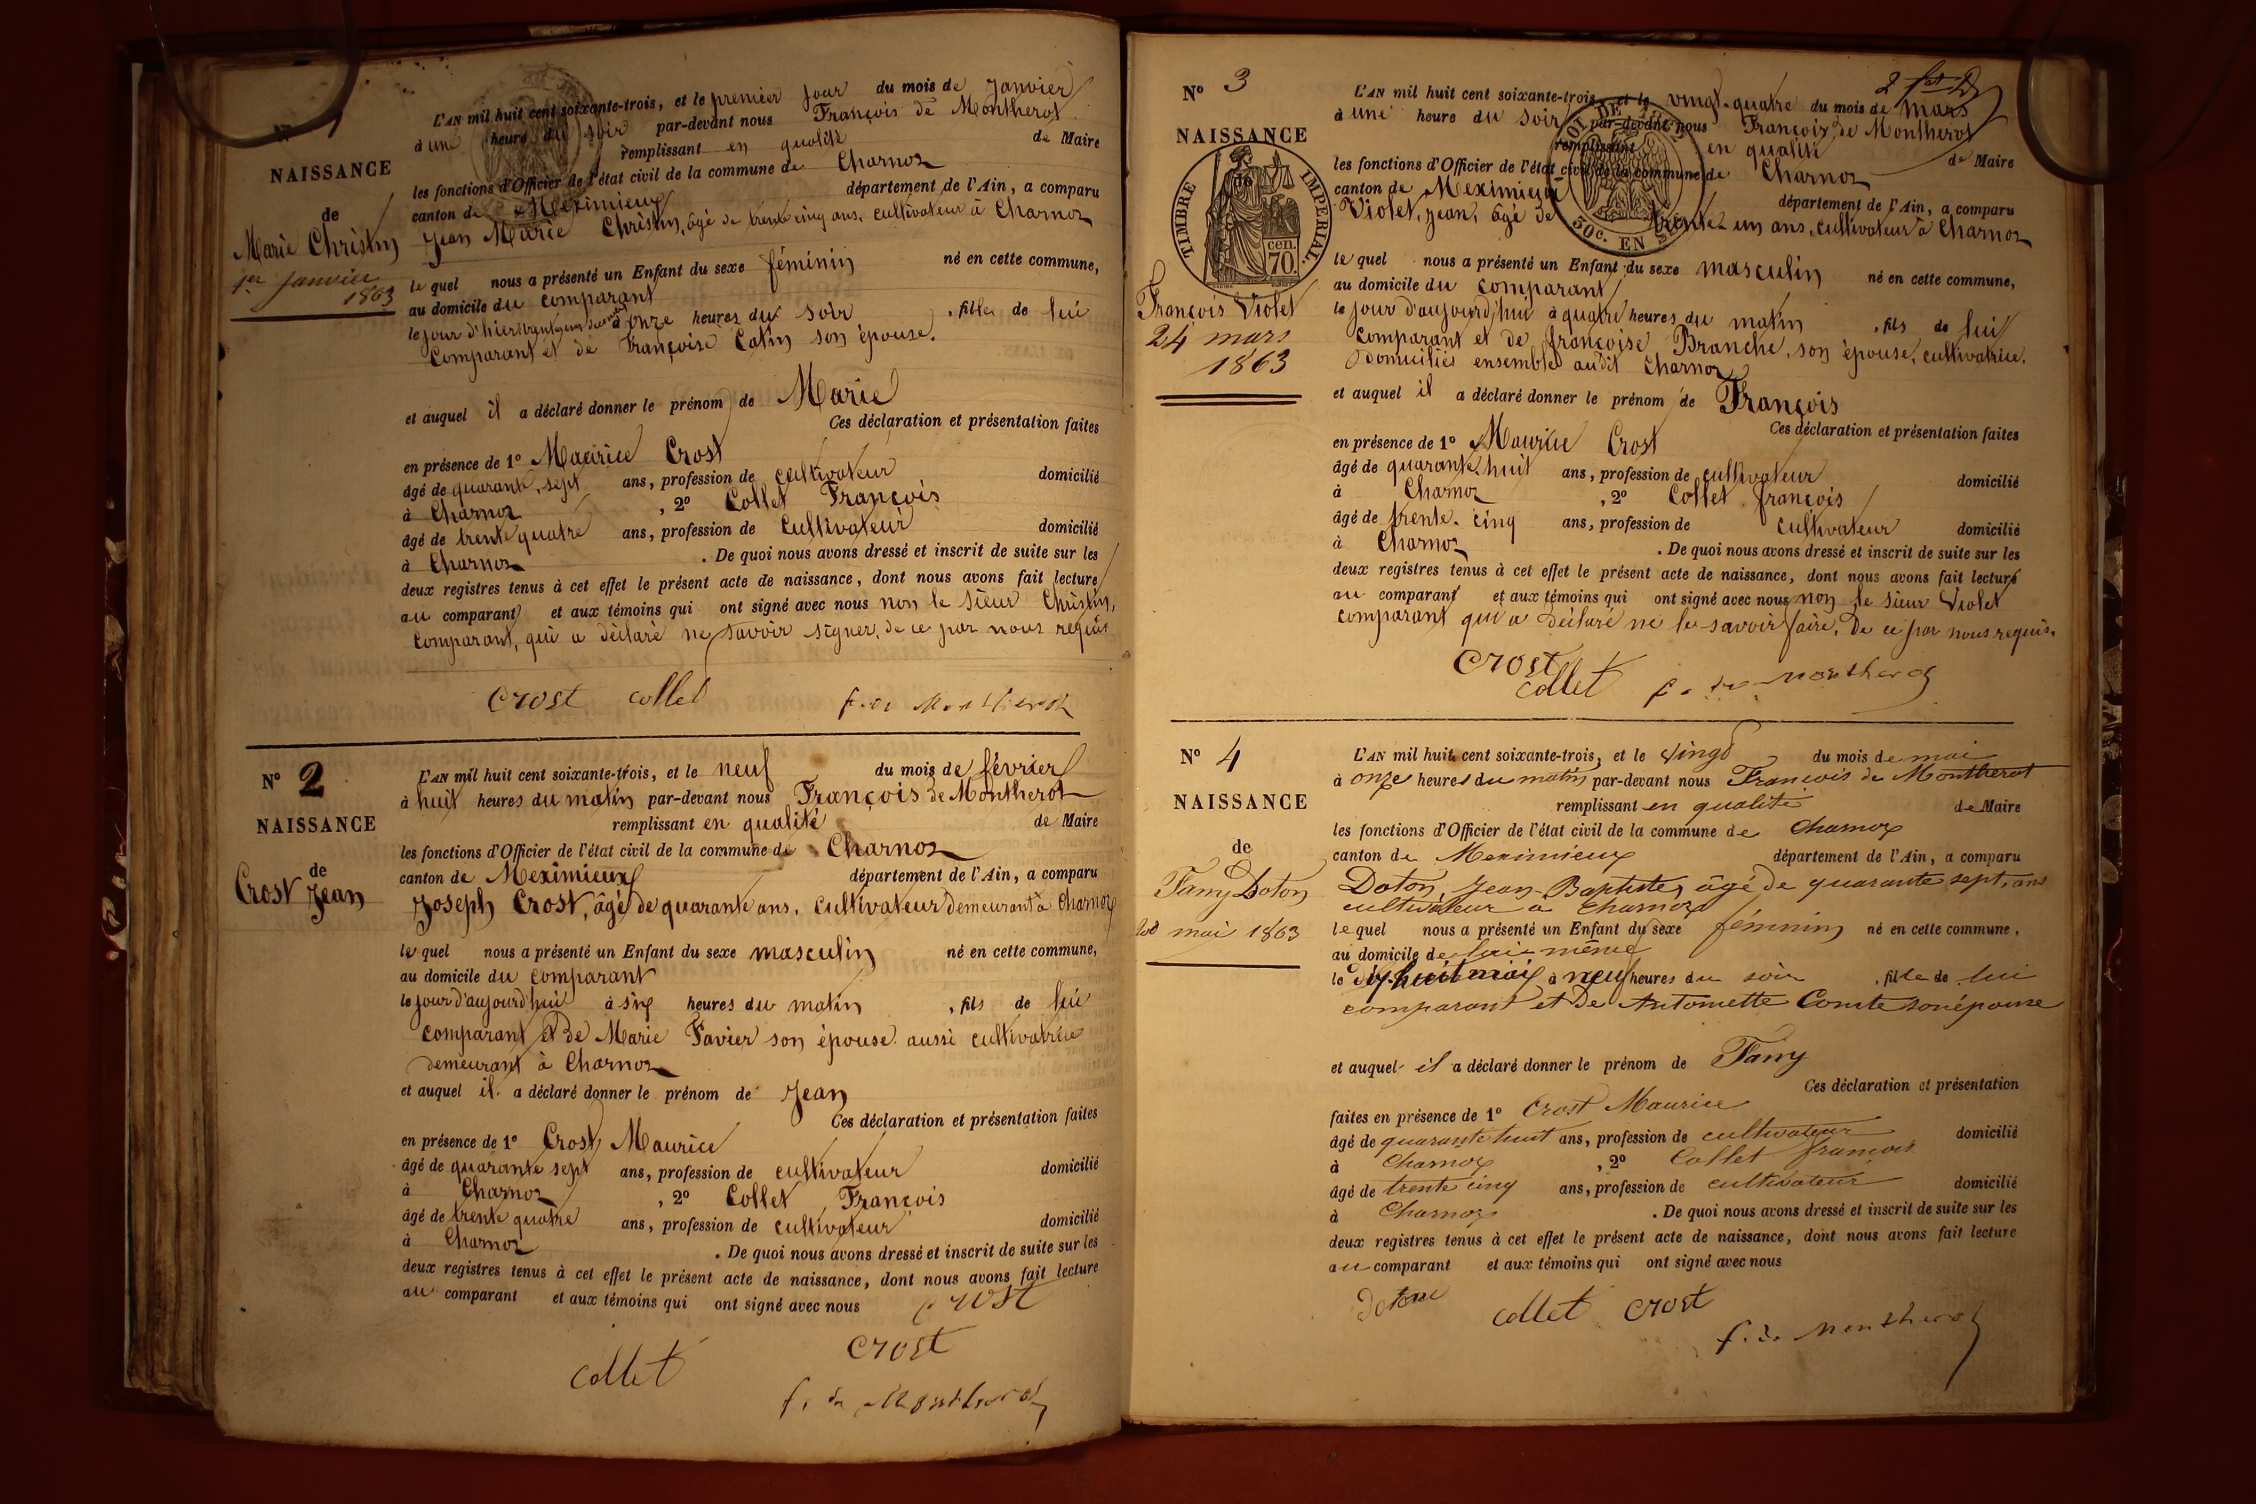 N° 1
NAISSANCE
de
Marie Christin
1er Janvier
1863
L'AN mil huit cent soixante-trois, et le premier jour du mois de Janvier
à une heure du soir par-devant nous François de Montherot
remplissant en qualité de Maire
les fonctions d'Officier de l'état civil de la commune de Charnoz
canton de Meximieux département de l'Ain, a comparu
Jean Marie Christin, âgé de trente cinq ans, cultivateur à Charnoz
le quel nous a présenté un Enfant du sexe féminin né en cette commune,
au domicile du comparant
le jour d'hier trente un décembre à onze heures du soir , fille de lui
Comparant et de Françoise Catin son épouse.
et auquel il a déclaré donner le prénom de Marie
Ces déclaration et présentation faites
en présence de 1° Maurice Crost
âgé de quarante, sept ans, profession de cultivateur domicilié
à Charnoz , 2° Collet François
âgé de trente quatre ans, profession de Cultivateur domicilié
à Charnoz . De quoi nous avons dressé et inscrit de suite sur les
deux registres tenus à cet effet le présent acte de naissance, dont nous avons fait lecture
au comparant et aux témoins qui ont signé avec nous non le sieur Christin,
Comparant, qui a déclaré ne savoir signer, de ce par nous requis
Crost collet f. de Montherot
N° 2
NAISSANCE
de
Crost Jean
L'AN mil huit cent soixante-trois, et le neuf du mois de février
à huit heures du matin par-devant nous François de Montherot
remplissant en qualité de Maire
les fonctions d'Officier de l'état civil de la commune de Charnoz
canton de Meximieux département de l'Ain, a comparu
Joseph Crost, âgé de quarante ans, cultivateur demeurant à Charnoz
le quel nous a présenté un Enfant du sexe masculin né en cette commune,
au domicile du comparant
le jour d'aujourd'hui à six heures du matin , fils de lui
comparant et de Marie Favier son épouse aussi cultivatrice
demeurant à Charnoz
et auquel il a déclaré donner le prénom de Jean
Ces déclaration et présentation faites
en présence de 1° Crost Maurice
âgé de quarante sept ans, profession de cultivateur domicilié
à Charnoz , 2° Collet François
âgé de trente quatre ans, profession de cultivateur domicilié
à Charnoz . De quoi nous avons dressé et inscrit de suite sur les
deux registres tenus à cet effet le présent acte de naissance, dont nous avons fait lecture
au comparant et aux témoins qui ont signé avec nous crost
crost
collet
f. de Montherot
N° 3
NAISSANCE
de
TIMBRE IMPERIAL
cen.
70.
François Violet
24 mars
1863
L'AN mil huit cent soixante-trois, et le vingt-quatre du mois de mars
à une heure du soir par-devant nous François de Montherot
remplissant en qualité de Maire
les fonctions d'Officier de l'état civil de la commune de Charnoz
canton de Meximieux département de l'Ain, a comparu
Violet, Jean, âgé de trente un ans, cultivateur à Charnoz
50c. EN SUS
le quel nous a présenté un Enfant du sexe masculin né en cette commune,
au domicile du comparant
le jour d'aujourd'hui à quatre heures du matin , fils de lui
Comparant et de françoise Branche, son épouse, cultivatrice.
domiciliés ensemble audit Charnoz
et auquel il a déclaré donner le prénom de François
Ces déclaration et présentation faites
en présence de 1° Maurice Crost
âgé de quarante huit ans, profession de cultivateur domicilié
à Charnoz , 2° Collet françois
âgé de trente. cinq ans, profession de cultivateur domicilié
à Charnoz . De quoi nous avons dressé et inscrit de suite sur les
deux registres tenus à cet effet le présent acte de naissance, dont nous avons fait lecture
au comparant et aux témoins qui ont signé avec nous non le sieur Violet
comparant qui a déclaré ne le savoir faire, De ce par nous requis.
Crost
collet f. de Montherot
N° 4
NAISSANCE
de
Fany Doton
mai 1863
L'AN mil huit cent soixante-trois, et le vingt du mois de mai
à onze heures du matin par-devant nous François de Montherot
remplissant en qualité de Maire
les fonctions d'Officier de l'état civil de la commune de Charnoz
canton de Meximieux département de l'Ain, a comparu
Doton, Jean-Baptiste, âgé de quarante sept, ans
cultivateur à Charnoz
le quel nous a présenté un Enfant du sexe féminin né en cette commune,
au domicile de lui-même
le dix huit mai à neuf heures du soir , fille de lui
comparant et de Antoinette Comte son épouse
et auquel il a déclaré donner le prénom de Fany
Ces déclaration et présentation
faites en présence de 1° Crost Maurice
âgé de quarante huit ans, profession de cultivateur domicilié
à Charnoz , 2° Collet francois
âgé de trente cinq ans, profession de cultivateur domicilié
à Charnoz . De quoi nous avons dressé et inscrit de suite sur les
deux registres tenus à cet effet le présent acte de naissance, dont nous avons fait lecture
au comparant et aux témoins qui ont signé avec nous
collet crost
f. de Montherot